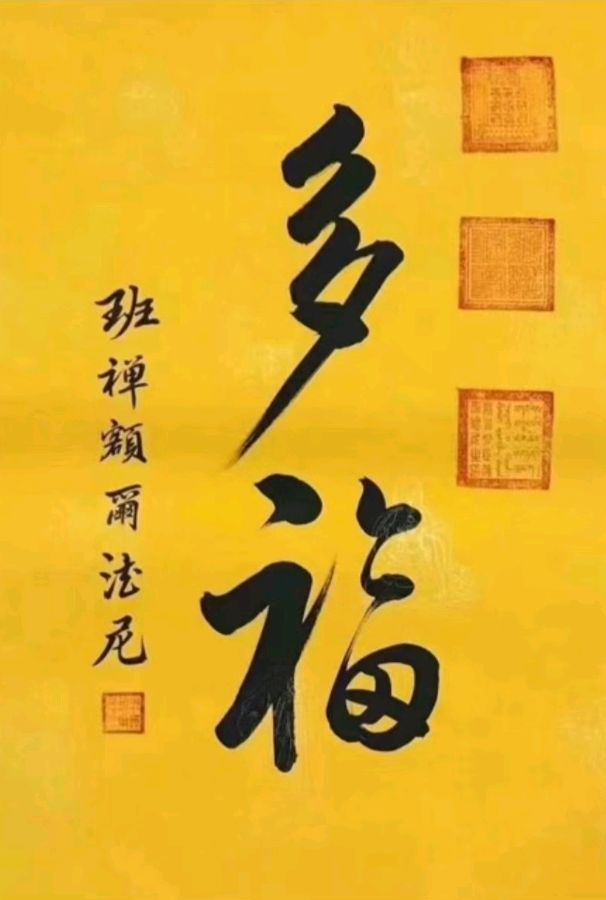 多福
班禅額爾德尼